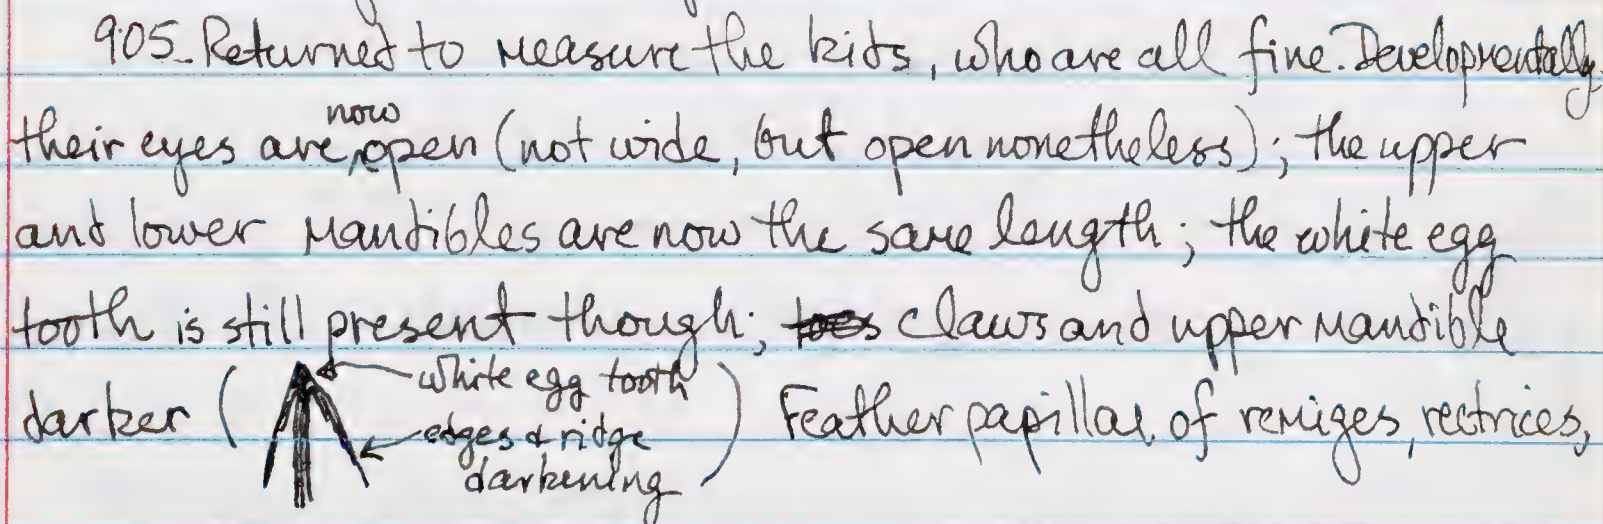 9:05_Returned to measure the kids, who are all fine. Developmentally
their eyes are now open (not wide, but open nonetheless); the upper
and lower mandibles are now the same length; the white egg
tooth is still present though; toes claws and upper mandible
darker ( white egg tooth ) Feather papillae of remiges, rectrices,
edges & ridge
darkening